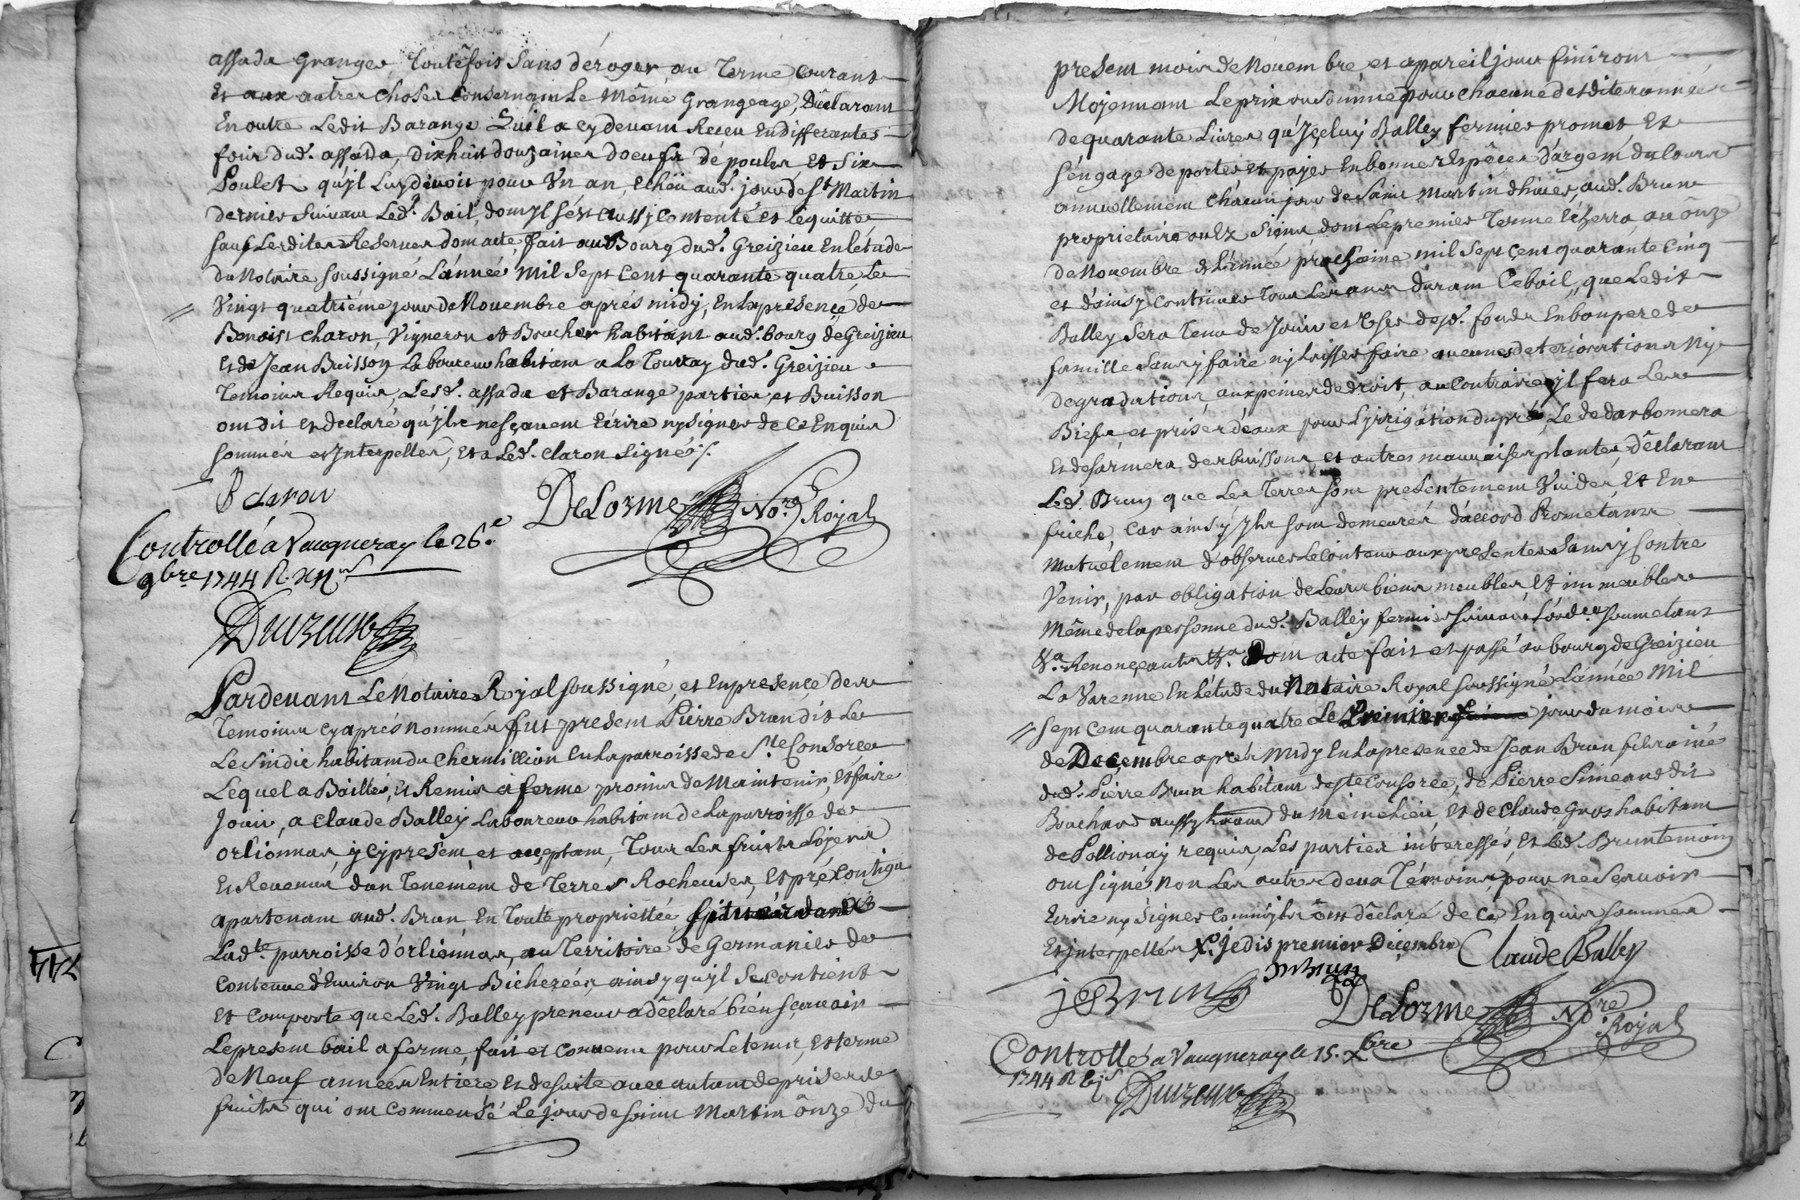 assada Granger, Toutefois Sans déroger au Terme Courant
Et aux autres Choses Consernant Le Même Grangeage, Déclarant
En outre Ledit Barange Quil a cy devant Receu En differentes
fois dud. assada, dixhuit douzaines d'oeufs de poules Et Six
Poulet qu'jl Luy devoit pour Un an, Echeü aud. jour de St Martin
dernier Suivant Led. Bail dont jl s'est aussj Contenté et L'equitte
sauf Lesdites Reserves dont acte, fait au Bourg dud. Greizieu En létude
du Notaire soussigné L'année Mil Sept Cent quarante quatre Le
Vingt quatrieme jour de Novembre aprés midy, En la presence de
Benoist Charon, Vigneron et Boucher habitant aud. bourg de Greizieu
Et de Jean Buisson Laboureur habitant a La Tourray dud. Greizieu
Temoins Requis, Lesd. assada et Barange parties et Buisson
ont dit et declaré qu'jls ne sçavent Ecrire ny Signer de ce Enquis
sommés et Interpellés, Et a Led. Claron Signé ./.
B claron
DeLorme No.re Royal
Controllé a Vaugneray le 26.e
9bre 1744 R.
Duvreux
Pardevant Le Notaire Royal soussigné, et En presence des
Temoins cy aprés nommés fut present Pierre Brun dit Le
Le Sindic habitant du Chermillion En La parroisse de Ste Consorce
Lequel a Baillé, et Remis a ferme promis de Maintenir, et faire
Jouir, a Claude Balley Laboureur habitant de La parroisse de
orlionnas jcy present, et acceptant, Tous Les fruits Loyers
Et Revenus d'un Tenement de Terres Rocheuses, Et pré Contigu
apartenant aud. Brun En Toute proprietée situés dans
Ladte. parroisse d'orliennas, au Territoire de Germanies de
Contenue d'Environ Vingt Bicherées ainsy qu'jl Se Contient
Et Comporte que Led. Balley preneur a déclaré bien sçavoir
Le present bail a ferme, fait et Convenu pour Le temps, Et terme
de Neuf années Entiere Et de suite avec autant de prises de
fruits qui ont Commensé Le jour de saint Martin ônze du
present mois de Novembre, et a pareil jour finiront
Moyennant Le prix ou Somme pour Chacune desdites années
de quarante Livres qu'Iceluy Balley fermier promet Et
s'engage de porter et payer En bonnes Espêces d'argent du Cours
annuellement Chacun jour de Saint Martin d'hiver aud. Brun
proprietaire ou Ez Siens dont Le premier Terme Echerra au ônze
de Novembre de L'année prochaine mil Sept Cent quarante Cinq
et d'ainsy Continuer Tous Les ans durant Ce bail, que Ledit
Balley Sera Tenu de Jouir et User desd. fonds En bon pere de
famille Sans y faire ny Laisser faire aucunes deteriorations Ny
degradations, aux peines de droit, au Contraire jl fera Les
Biefs et prises d'eaux pour L'jrrigation du pré, Le dedarbonnera
Et desarmera des buissons et autres mauvaises plantes, déclarant
Led. Brun que Les Terres sont presentement Vuides Et En
friche, Car ainsy jls sont demeurés d'accord Prometants
Mutuelement d'observer Le Contenu aux presentes Sans y Contre
Venir, par obligation de Leurs biens meubles, Et immeubles
Même de La personne dud. Balley, fermier Suivant Soumetant
&.a Renonçants &.a Dont acte fait et passé au bourg de Greizieu
La Varenne En L'étude du Notaire Royal soussigné L'année Mil
Sept Cent quarante quatre Le Premier jour du mois
de Decembre aprés Midy En La presence de Jean Brun fils aisné
dud. Pierre Brun habitant de Ste Consorce, de Pierre Simeand dit
Bouchard aussy du Meme Lieu Et de Claude Gros habitant
de Pollionay requis, Les parties interessés, Et Led. Brun temoin
ont Signés Non Les autres deux Témoins pour ne Sçavoir
Ecrire ny Signer Comm'jls ônt déclaré de Ce Enquis Sommés
Et jnterpellés X. je dis premier Decembre
Claude Balley
jpBrun
DeLorme No.re Royal
Controllé a Vaugneray le 15. Xbre
1744 R
Duvreux